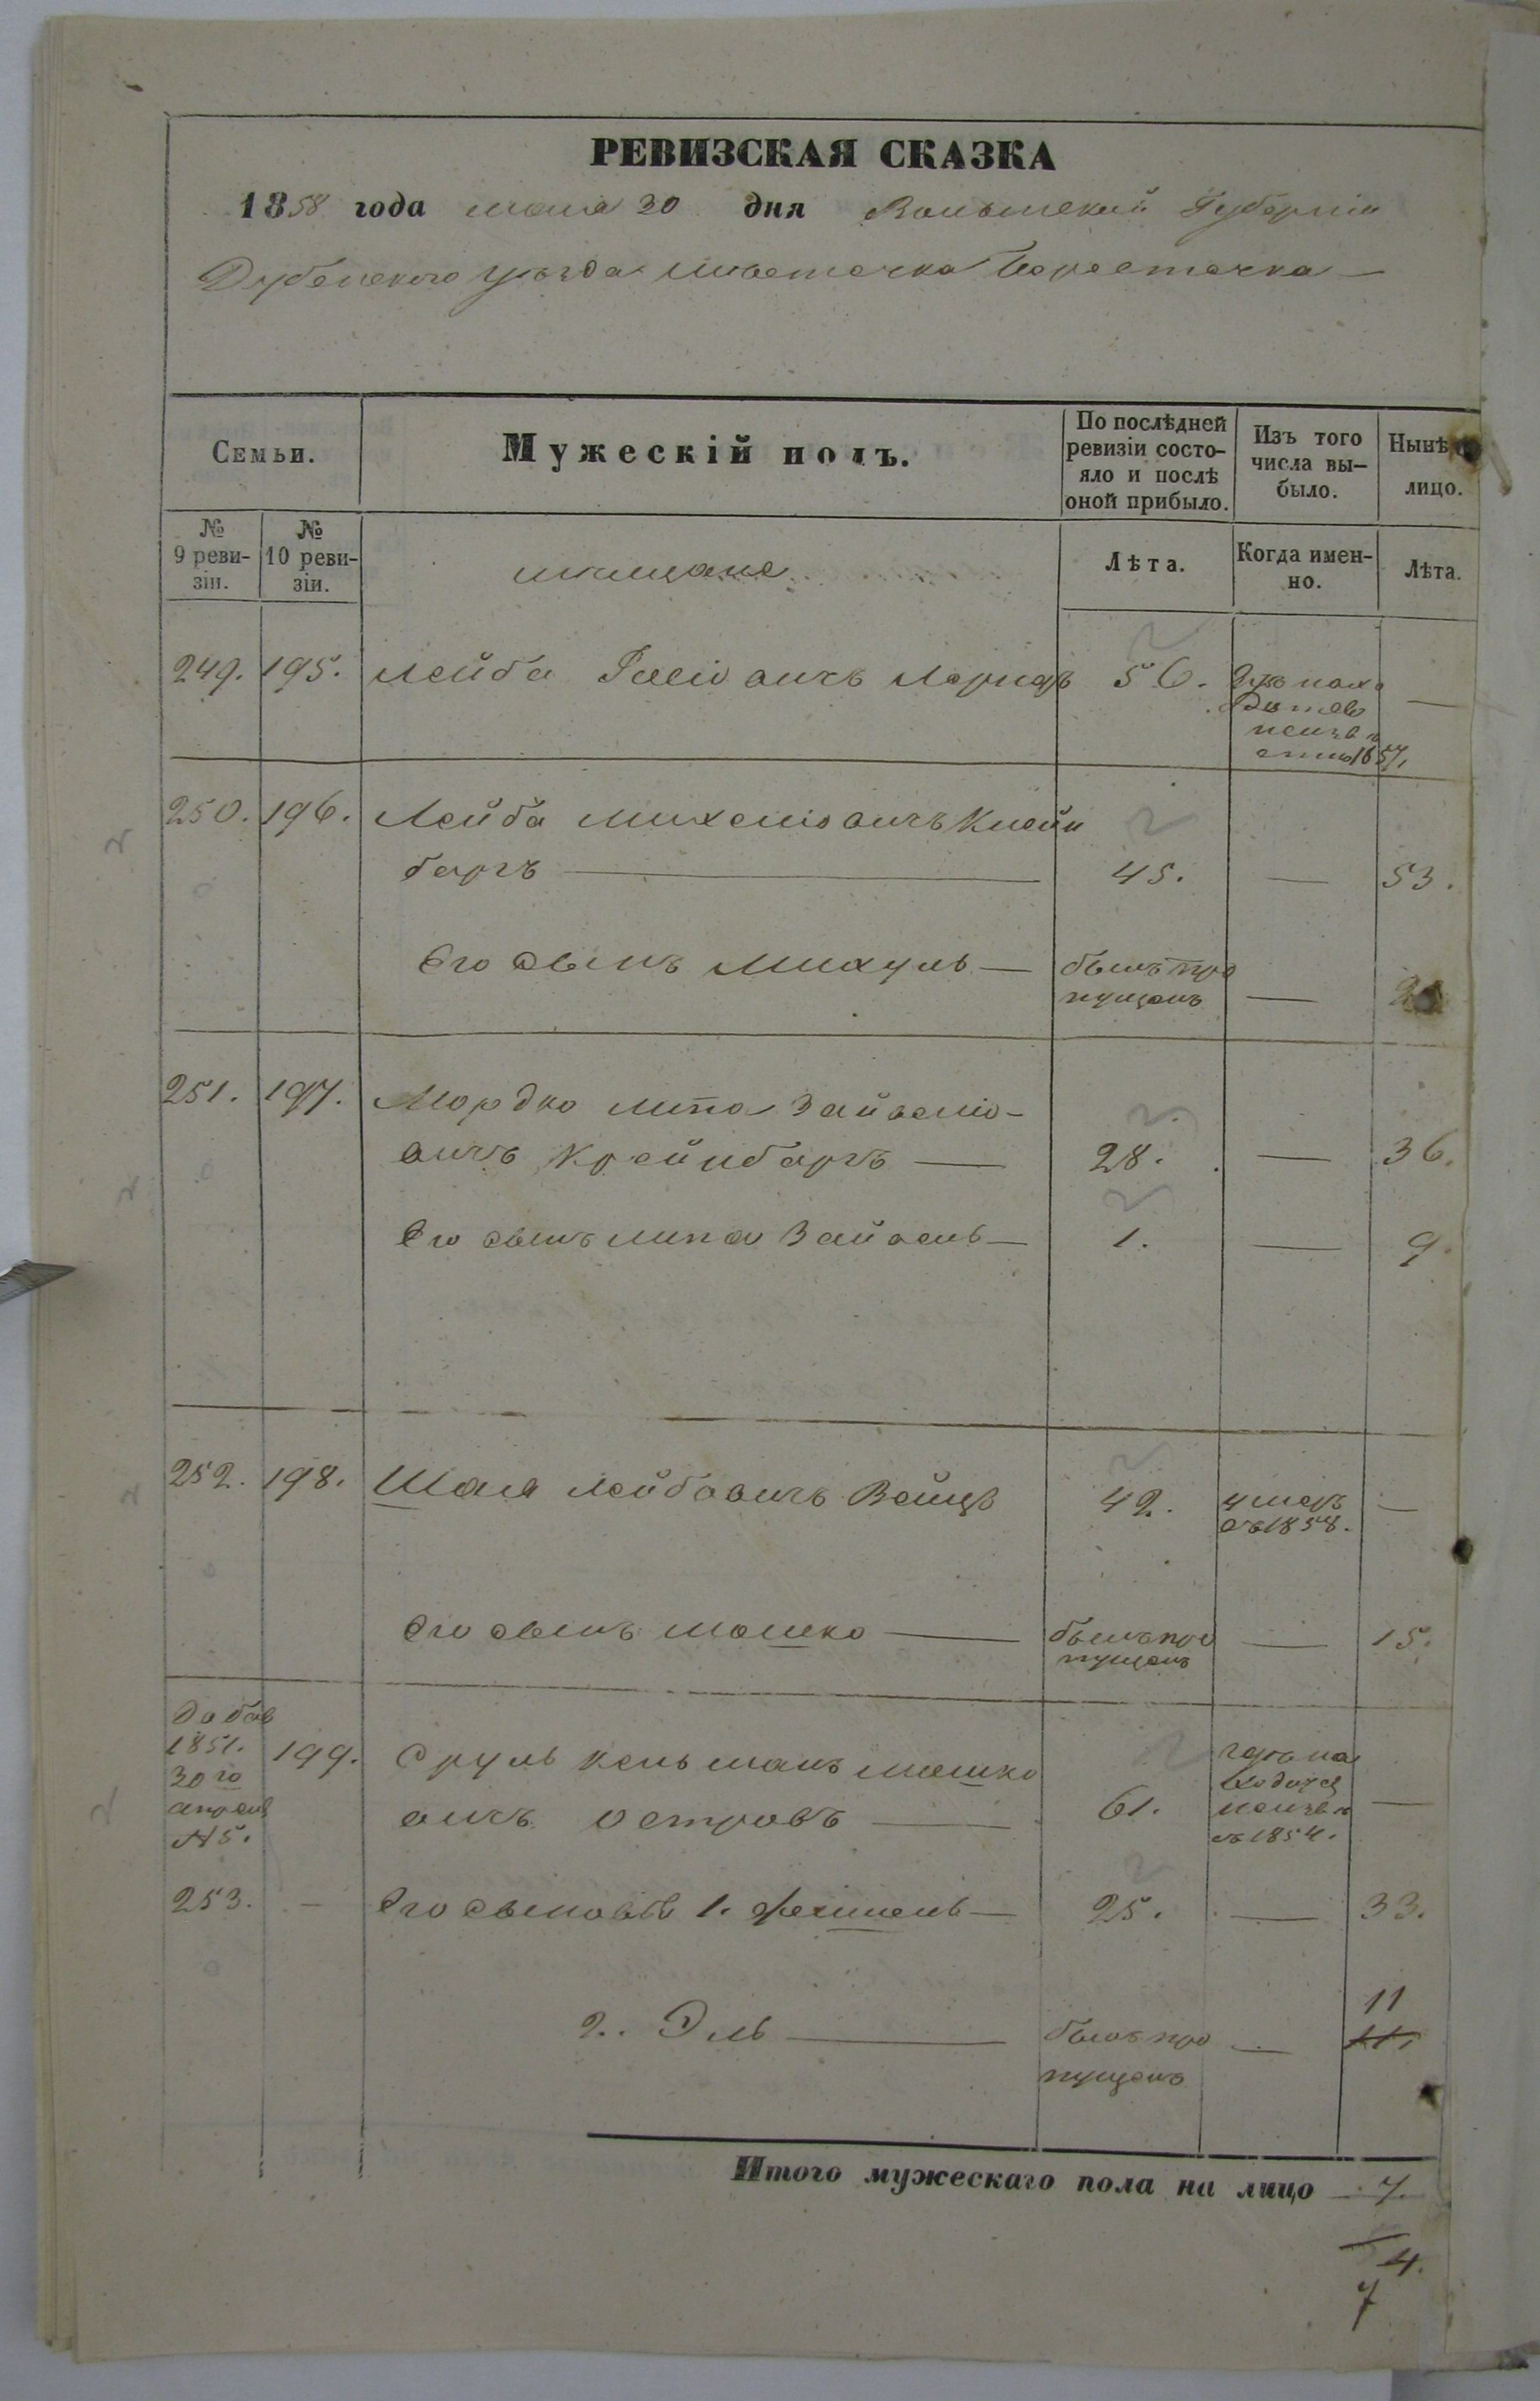 РЕВИЗСКАЯ СКАЗКА
1858 года мая 30 дня Волынской Губерніи
Дубенского уѣзда мѣстечка Берестечка —
Семьи.
Мужескій полъ.
По послѣдней ревизіи состо-
яло и послѣ оной прибыло.
Изъ того числа вы-
было.
Нынѣ
лицо.
№ 9 реви-
зіи.
№ 10 реви-
зіи.
мѣщане
Лѣта.
Когда имен-
но.
Лѣта.
249. 195. Лейба 56. —
1857.
250. 196. Лейба Михеліовичъ Клейн
бергъ — 45. — 53.
Его сынъ Михуль — былъ про
пущенъ —
251. 197. Мордко Липа Зайвеліо-
вичъ Крейнбергъ — 28. — 36.
Его сынъ Липа Зайвель — 1. — 9.
252. 198. Шая Лейбовичъ Вейцъ 42. умеръ —
въ 1858.
Его сынъ Мошко — былъ про — 15.
пущенъ
Добав
1851. 199. Сруль Кельманъ Мошко
30го
апреля
№ 5.
вичъ Островъ — 61. —
въ 1854.
253. — Его сыновья 1. Фехшель — 25. — 33.
2. Эль — былъ про — 11
пущенъ
Итого мужескаго пола на лицо 7.
4.
7